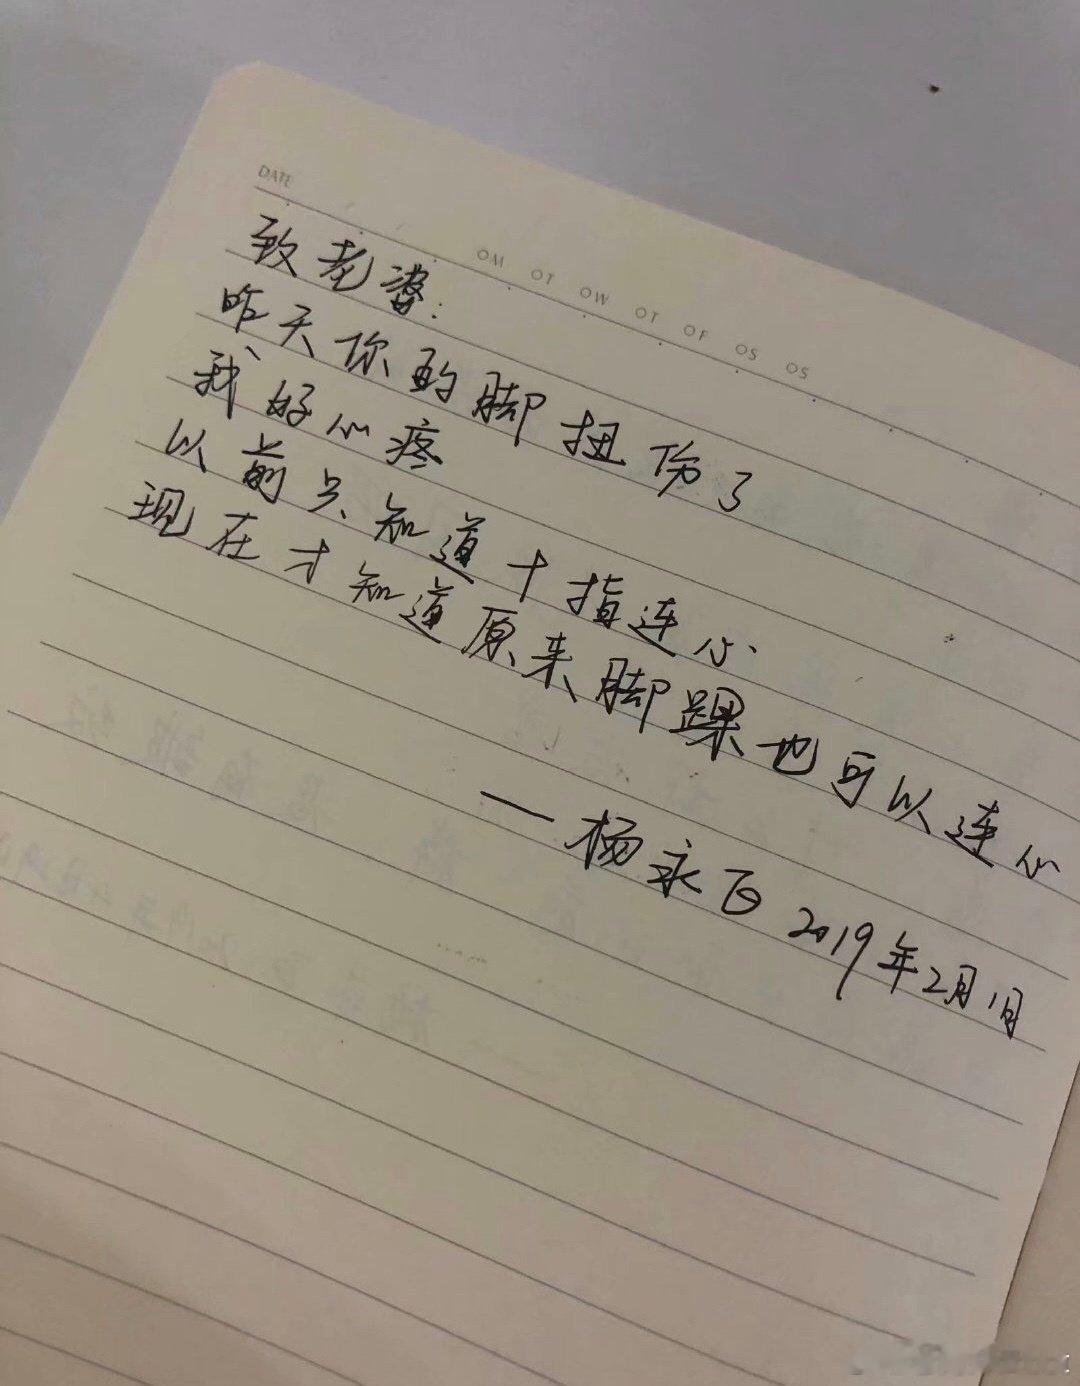 DATE
OM OT OW OT OF OS OS
致老婆：
昨天你的脚扭伤了
我好心疼
以前只知道十指连心
现在才知道原来脚踝也可以连心
——杨永 2019年2月1日